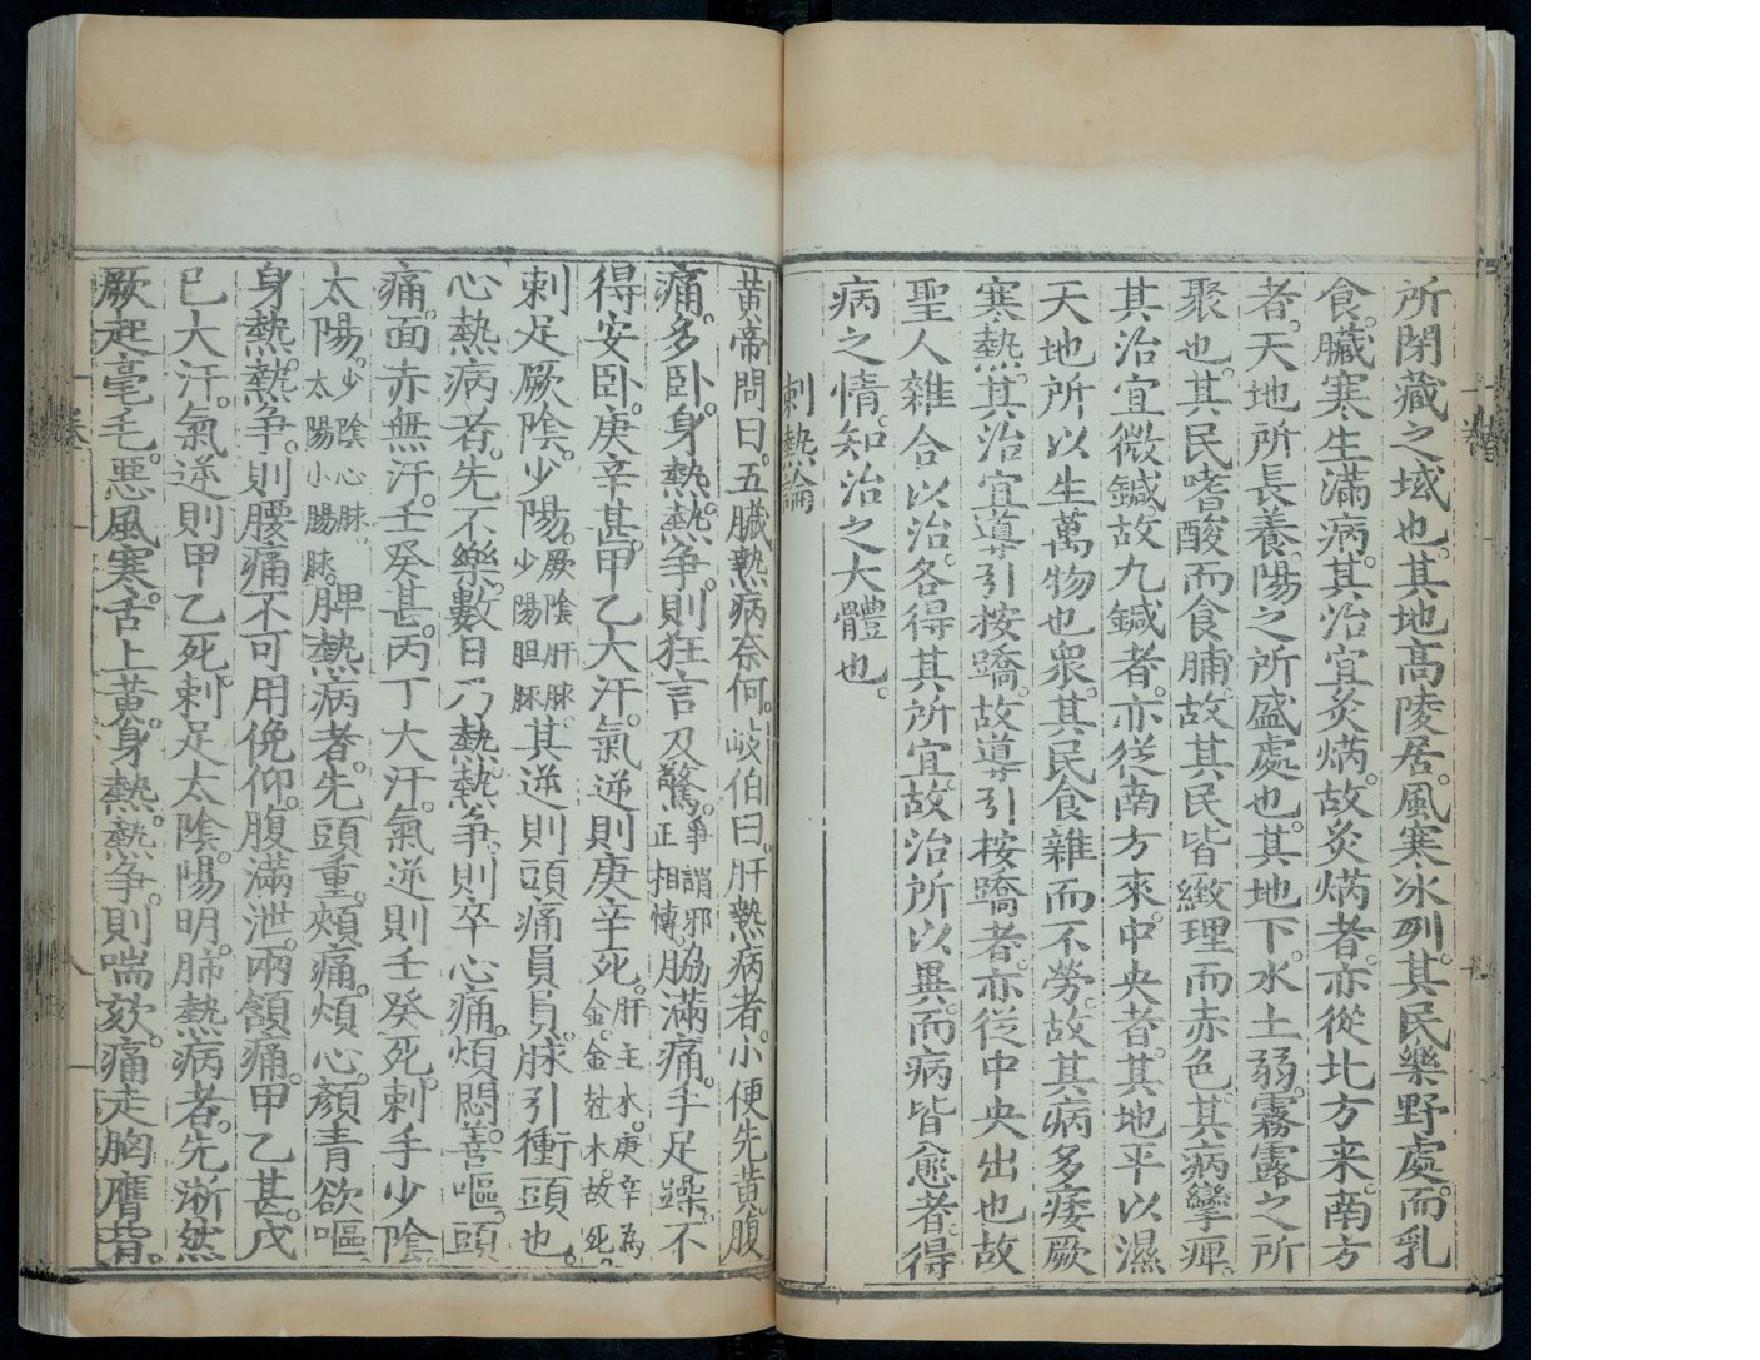 所閉藏之域也。其地高陵居。風寒冰列。其民樂野處。而乳
食。臟寒生滿病。其治宜灸焫。故灸焫者。亦從北方来。南方
者。天地所長養。陽之所盛處也。其地下。水土弱。霧露之所
聚也。其民嗜酸而食胕。故其民皆緻理而赤色。其病攣痺。
其治宜微鍼。故九鍼者。亦從南方來。中央者。其地平以濕
天地所以生萬物也衆。其民食雜而不勞。故其病多痿厥
寒熱。其治宜導引按蹻。故導引按蹻者。亦從中央出也故
聖人雜合以治。各得其所宜。故治所以異。而病皆愈者。得
病之情。知治之大體也。
刺熱論
黃帝問曰。五臟熱病奈何。岐伯曰。肝熱病者。小便先黃腹
痛。多卧。身熱。熱爭。則狂言及驚。爭謂邪正相慱。脇滿痛。手足躁。不
得安卧。庚辛甚。甲乙大汗。氣逆則庚辛死。肝主木。庚辛為金。金尅木。故死。
刺足厥陰。少陽。厥陰肝脉。少陽胆脉。其逆則頭痛員員。脉引衝頭也。
心熱病者。先不樂。數日乃熱。熱爭。則卒心痛。煩悶。善嘔。頭
痛。面赤無汗。壬癸甚。丙丁大汗。氣逆則壬癸死。刺手少陰
太陽。少陰心脉。太陽小腸脉。脾熱病者。先頭重。頰痛。煩心。顏青欲嘔
身熱。熱爭。則腰痛不可用俛仰。腹滿泄。兩頷痛。甲乙甚。戊
己大汗。氣逆則甲乙死。刺足太陰。陽明。肺熱病者。先淅然
厥起毫毛。惡風寒。舌上黃。身熱。熱爭。則喘欬。痛走胸膺背。